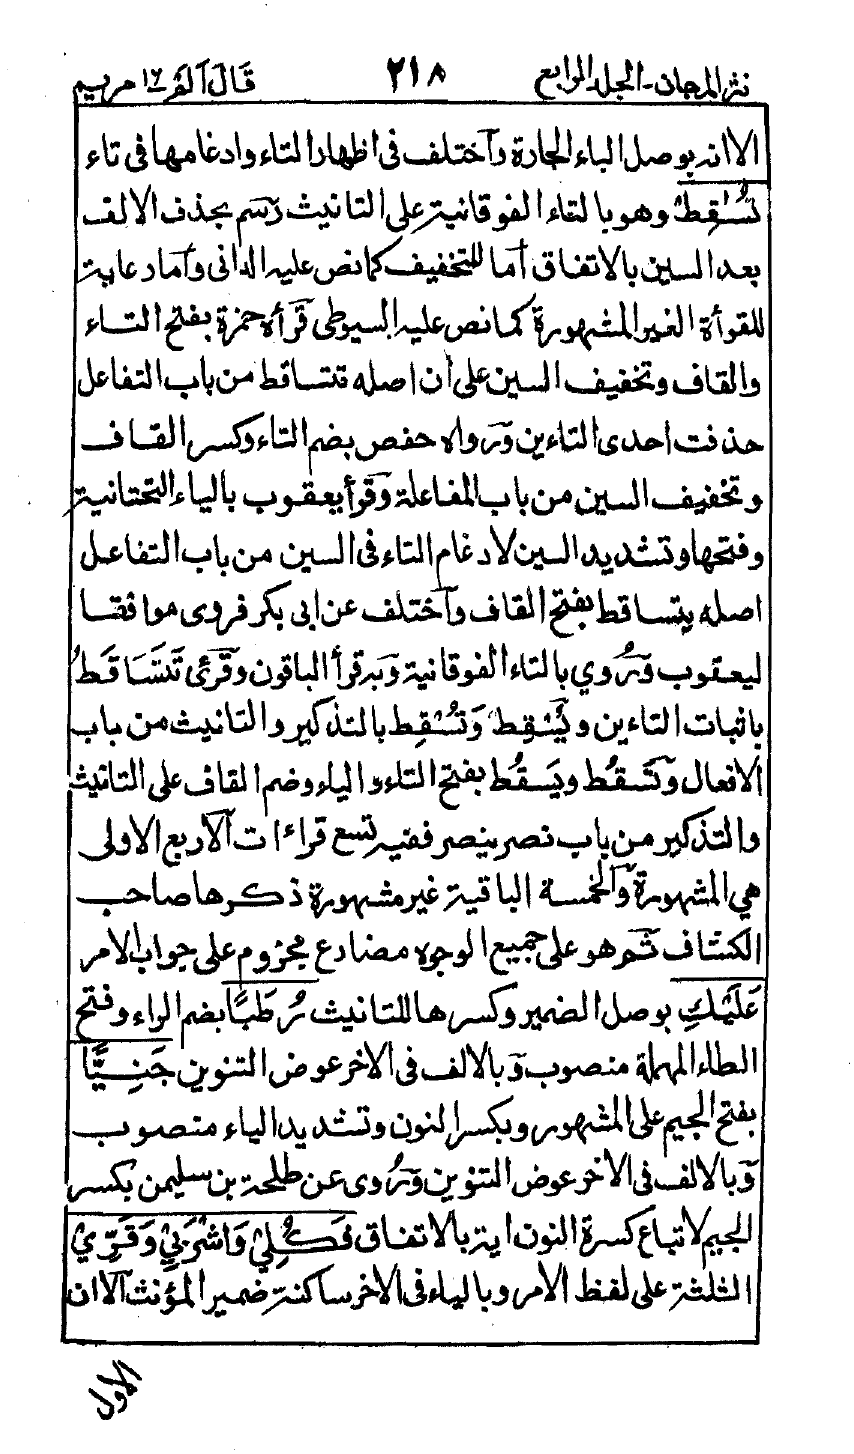 نثر المرجان - الجلد الرابع ٢١٨ قال الم ١٦ مريم
الا انه بوصل الباء الجارة وآختلف فى اظهار التاء وادغامها فى تاء
تُسٰقِطْ وهو بالتاء الفوقانية على التانيث رسم بحذف الالف
بعد السين بالاتفاق أما للتخفيف كما نص عليه الدانى وأما رعاية
للقرأة الغير المشهورة كما نص عليه السيوطى قرأه حمزة بفتح التاء
والقاف وتخفيف السين على أن اصله تتساقط من باب التفاعل
حذفت احدى التاءين ورواه حفص بضم التاء وكسر القاف
وتخفيف السين من باب المفاعلة وقرأ يعقوب بالياء التحتانية
وفتحها وتشديد السين لادغام التاء فى السين من باب التفاعل
اصله يتساقط بفتح القاف وآختلف عن ابى بكر فروى موافقا
ليعقوب وَرُوي بالتاء الفوقانية وبه قرأ الباقون وقرئ تَتَسَاقَطُ
باثبات التاءين ويُسْقِطْ وَتُسْقِطْ بالتذكير والتانيث من باب
الافعال وَتَسْقُطْ ويَسْقُطْ بفتح التاء والياء وضم القاف على التانيث
والتذكير من باب نصر ينصر ففيه تسع قراءات آلاربع الاولى
هي المشهورة وآلخمسة الباقية غير مشهورة ذكرها صاحب
الكشاف ثم هو على جميع الوجوه مضارع مجزوم على جواب الامر
عَلَيْكِ بوصل الضمير وكسرها للتانيث رُطَبًا بضم الراء وفتح
الطاء المهملة منصوب وبالالف فى الاخر عوض التنوين جَنِيًّا
بفتح الجيم على المشهور وبكسر النون وتشديد الياء منصوب
وبالالف فى الاخر عوض التنوين وَرُوى عن طلحة بن سليمن بكسر
الجيم لاتباع كسرة النون اينز بالاتفاق فَكُلِيْ وَاشْرَبِيْ وَقَرِّيْ
الثلثة على لفظ الامر وبالياء فى الاخر ساكنة ضمير المؤنث آلا ان
الاول